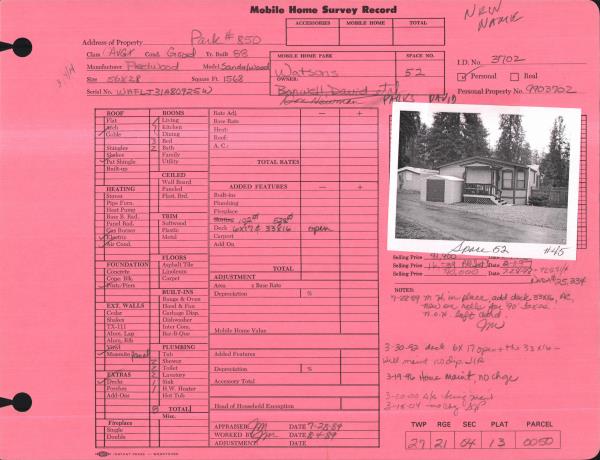 Mobile Home Survey Record
NEW NAME
ACCESSORIES MOBILE HOME TOTAL
Address of Property Park # 850
Class Avg+ Cond. Good Yr. Built 88
Manufacturer Fleetwood Model Sandalwood
Size 56x28 Square Ft. 1568
Serial No. WAFLJ31A80925
MOBILE HOME PARK SPACE NO.
Watsons 52
OWNER:
David
I.D. No. 31102
Personal Real
Personal Property No. 9903702
ROOF
Flat
Arch
Gable
Shingles
Shakes
Pat Shingle
Built-up
HEATING
Stoves
Pipe Furn.
Heat Pump
Base B. Rad.
Panel Rad.
Gas Burner
Electric
Air Cond.
FOUNDATION
Concrete
Conc. Blk.
Posts/Piers
EXT. WALLS
Cedar
Shakes
TX-111
Alum. Lap
Alum. Rib
Vinyl
Masonite Panel
EXTRAS
Decks
Porches
Add-Ons
Fireplace
Single
Double
ROOMS
1 Living
1 Kitchen
1 Dining
3 Bed
2 Bath
Family
Utility
CEILED
Wall Board
Paneled
Plast. Brd.
TRIM
Softwood
Plastic
Metal
FLOORS
Asphalt Tile
Linoleum
Carpet
BUILT-INS
Range & Oven
Hood & Fan
Garbage Disp.
Dishwasher
Inter Com.
Bar-B-Que
PLUMBING
Tub
2 Shower
2 Toilet
2 Lavatory
1 Sink
1 H.W. Heater
Hot Tub
8 TOTAL
Misc.
Rate Adj. — +
Base Rate
Heat:
Roof:
A. C.:
TOTAL RATES
ADDED FEATURES — +
Built-ins
Plumbing
Fireplace
Skirting 192 528
Deck 6x17 & 33x16 open
Carport
Add On
TOTAL
ADJUSTMENT
Area x Base Rate
Depreciation %
Mobile Home Value
Added Features
Depreciation %
Accessory Total
Head of Household Exemption
APPRAISER DATE 7-28-89
WORKED BY DATE 8-4-89
ADJUSTMENT DATE
Space 52 #45
Selling Price 41,900 Date
Selling Price Date
Selling Price 40,000 Date
NOTES:
7-28-89 M.H. in place, add deck 33x16, AC,
new on rolls for 90 taxes.
3-30-92 deck 6x17 open + the 33x16 -
3-19-96 Home maint, no chge
TWP RGE SEC PLAT PARCEL
27 21 04 13 0050